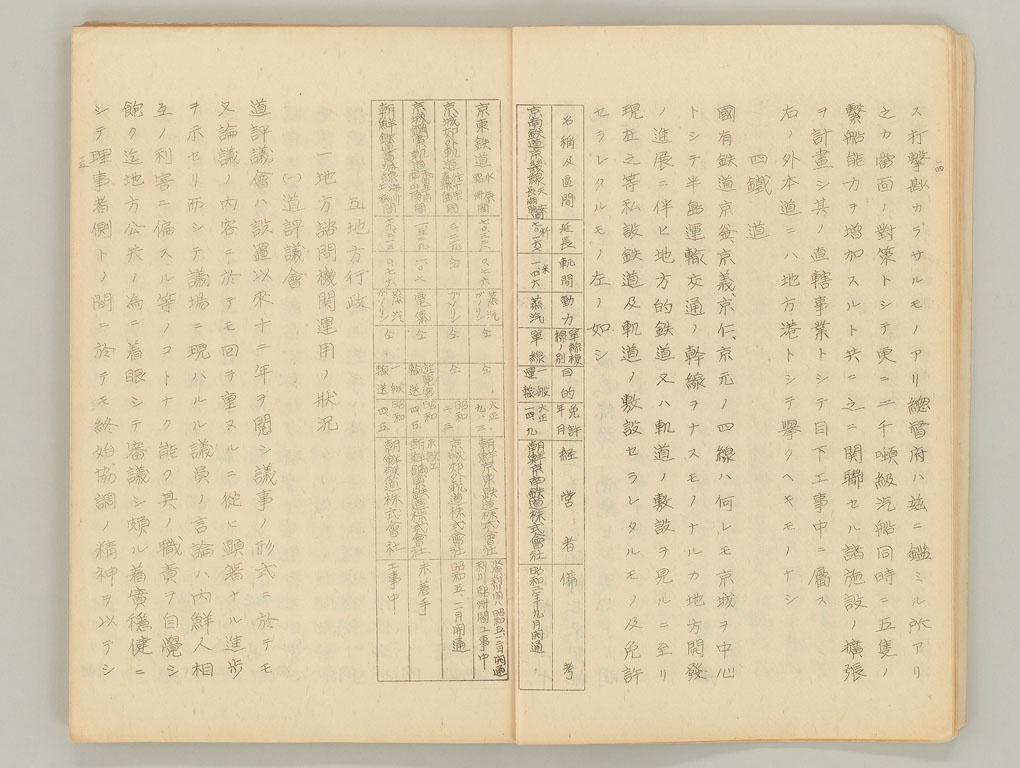 一四
ス打撃尠カラサルモノアリ總督府ハ茲ニ鑑ミル所アリ
之カ當面ノ對策トシテ更ニ二千噸級汽船同時ニ五隻ノ
繋船能力ヲ増加スルト共ニ之ニ関聯セル諸施設ノ擴張
ヲ計畫シ其ノ直轄事業トシテ目下工事中ニ屬ス
右ノ外本道ニハ地方港トシテ擧クヘキモノナシ
四 鐵道
國有鉄道京釜、京義、京仁、京元ノ四線ハ何レモ京城ヲ中心
トシテ半島運輸交通ノ幹線ヲナスモノナルカ地方開發
ノ進展ニ伴ヒ地方的鉄道又ハ軌道ノ敷設ヲ見ルニ至リ
現在之等私設鉄道及軌道ノ敷設セラレタルモノ及免許
セラレタルモノ左ノ如シ
名稱及區間 延長 軌間 動力 單線複線ノ別 目的 免許年月 経営者 備考
京南鉄道京畿線 米 一四六 蒸汽 單線 一般運輸 大正一四、九 朝鮮京南鉄道株式會社 昭和二年九月開通
京東鉄道 水原驪州間 〇、七六 蒸汽ガソリン 仝 仝 大正九、三 朝鮮京東鉄道株式會社 水原利川間ハ昭和五、一二月開通 利川驪州間工事中
京城郊外軌道 仝 ガソリン 仝 仝 昭和 京城郊外軌道株式會社 昭和五、二月開通
電気 仝 昭和 未着手
朝鮮鉄道黄海線 〇、七六 蒸汽ガソリン 仝 一般運送 昭和四、五 朝鮮鉄道株式會社 工事中
五 地方行政
一 地方諮問機関運用ノ状況
(一) 道評議會
道評議會ハ設置以来十二年ヲ閲シ議事ノ形式ニ於テモ
又論議ノ内容ニ於テモ回ヲ重ヌルニ從ヒ顕著ナル進歩
ヲ示セリ而シテ議場ニ現ハルル議員ノ言論ハ内鮮人相
互ノ利害ニ偏スル等ノコトナク能ク其ノ職責ヲ自覺シ
飽ク迄地方公共ノ為ニ着眼シテ審議シ頗ル着實穏健ニ
シテ理事者側トノ間ニ於テモ終始協調ノ精神ヲ以テシ
一五